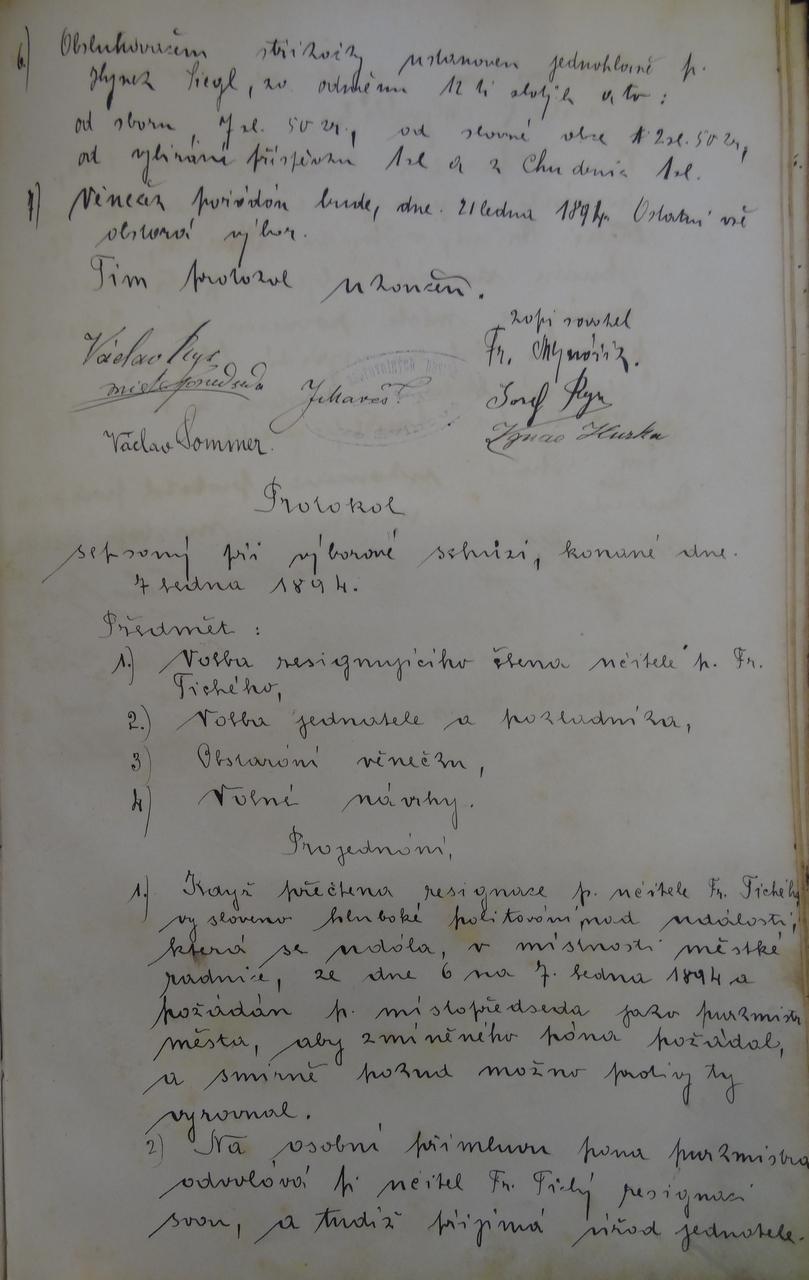 6.) Obsluhovačem stříkačky ustanoven jednohlasně p.
Hynek Siegl, za odměnu 12 ti zlatých a to:
od sboru 7 zl. 50 kr., od slavné obce 2 zl. 50 kr,
od vybírání příspěvku 1 zl a z Chudenic 1 zl.
7) Věneček pořádán bude, dne 21 ledna 1894. Ostatní vše
obstará výbor.
Tím protokol ukončen.
zapisovatel
Václav Rys
Fr. Mynářík.
místopředseda
J. Mareš
Josef Rys
Václav Sommer.
Ignac Huska
Protokol
sepsaný při výborové schůzi, konané dne
7 ledna 1894.
Předmět:
1.) Volba resignujícího člena učitele p. Fr.
Tichého,
2.) Volba jednatele a pokladníka,
3) Obstarání věnečku,
4) Volné návrhy.
Projednání,
1.) Když přečtena resignace p. učitele Fr. Tichého
vysloveno hluboké politování nad událostí,
která se udála, v místnosti městké
radnice, ze dne 6 na 7. ledna 1894 a
požádán p. místopředseda jako purkmistr
města, aby zmíněného pána požádal,
a smírně pokud možno pativy ty
vyrovnal.
2) Na osobní přímluvu pana purkmistra
odvolává p. učitel Fr. Tichý resignaci
svou, a tudíž přijímá úřad jednatele.